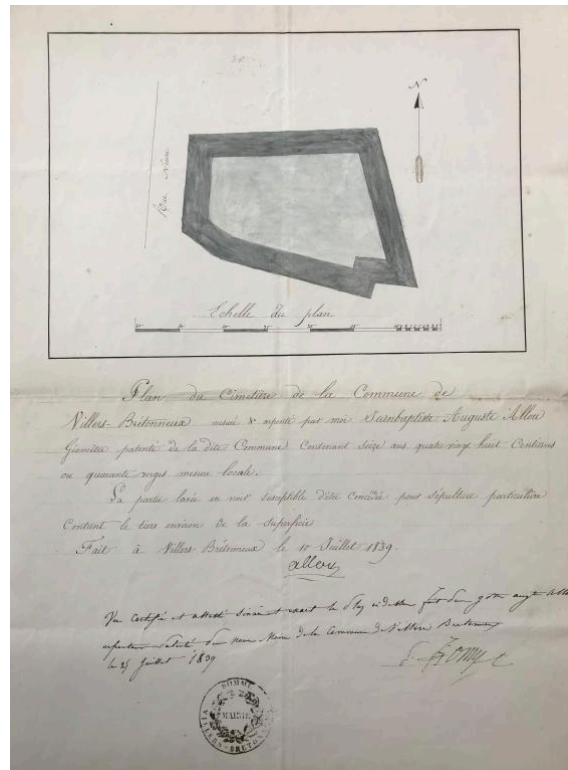 N
Rue Neuve
Echelle du plan
Plan du Cimetière de la Commune de
Villers-Bretonneux mesuré & arpenté par moi Jeanbaptiste Auguste Allou
Géomètre patenté de la dite Commune Contenant seize ares quatre vingt huit Centiares
ou quarante verges mesure locale.
La partie lavée en noir susceptible d'être Concédée pour sépulture particulière
Contient le tiers environ de la superficie
Fait à Villers-Bretonneux le 10 Juillet 1839.
allou
Vu Certifié et attesté sincère et exact le plan ci dessus
Maire de la Commune de Villers Bretonneux
le 25 Juillet 1839
SOMME
MAIRIE
VILLERS-BRETONNEUX